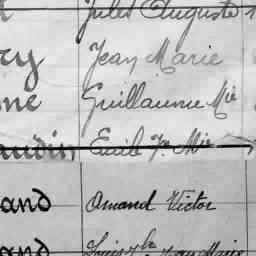 Jules Auguste
ry Jean Marie
ne Guillaume Mie
audin Emile Fr. Mie
and Amand Victor
and Louis Jean Marie